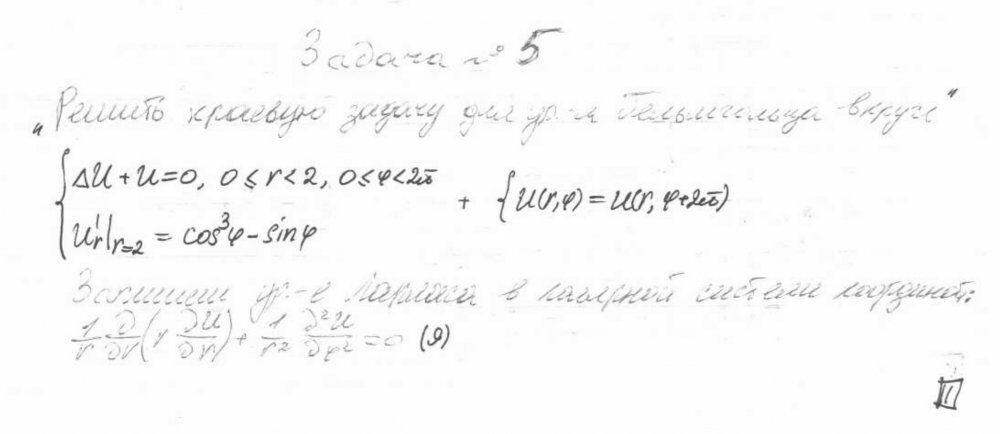 Задача № 5
„Решить краевую задачу для ур-я Гельмгольца в круге"
{ΔU + U = 0, 0 ≤ r < 2, 0 ≤ φ < 2π
U'r|r=2 = cos³φ - sinφ
+ {U(r,φ) = U(r, φ+2π)
Запишем ур-е Лапласа в полярной системе координат:
1/r ∂/∂r (r ∂U/∂r) + 1/r² ∂²U/∂φ² = 0 (9)
1